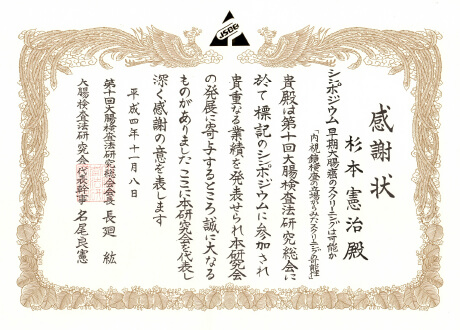 JSDE
感謝状
杉本憲治殿
シンポジウム 早期大腸癌のスクリーニングは可能か
「内視鏡検査の立場からみたスクリーニングの可能性」
貴殿は第十回大腸検査法研究総会に
於て標記のシンポジウムに参加され
貴重なる業績を発表せられ本研究会
の発展に寄与するところ誠に大なる
ものがありましたここに本研究会を代表し
深く感謝の意を表します
平成四年十一月八日
第十回大腸検査法研究総会会長 長廻 紘
大腸検査法研究会代表幹事 名尾良憲